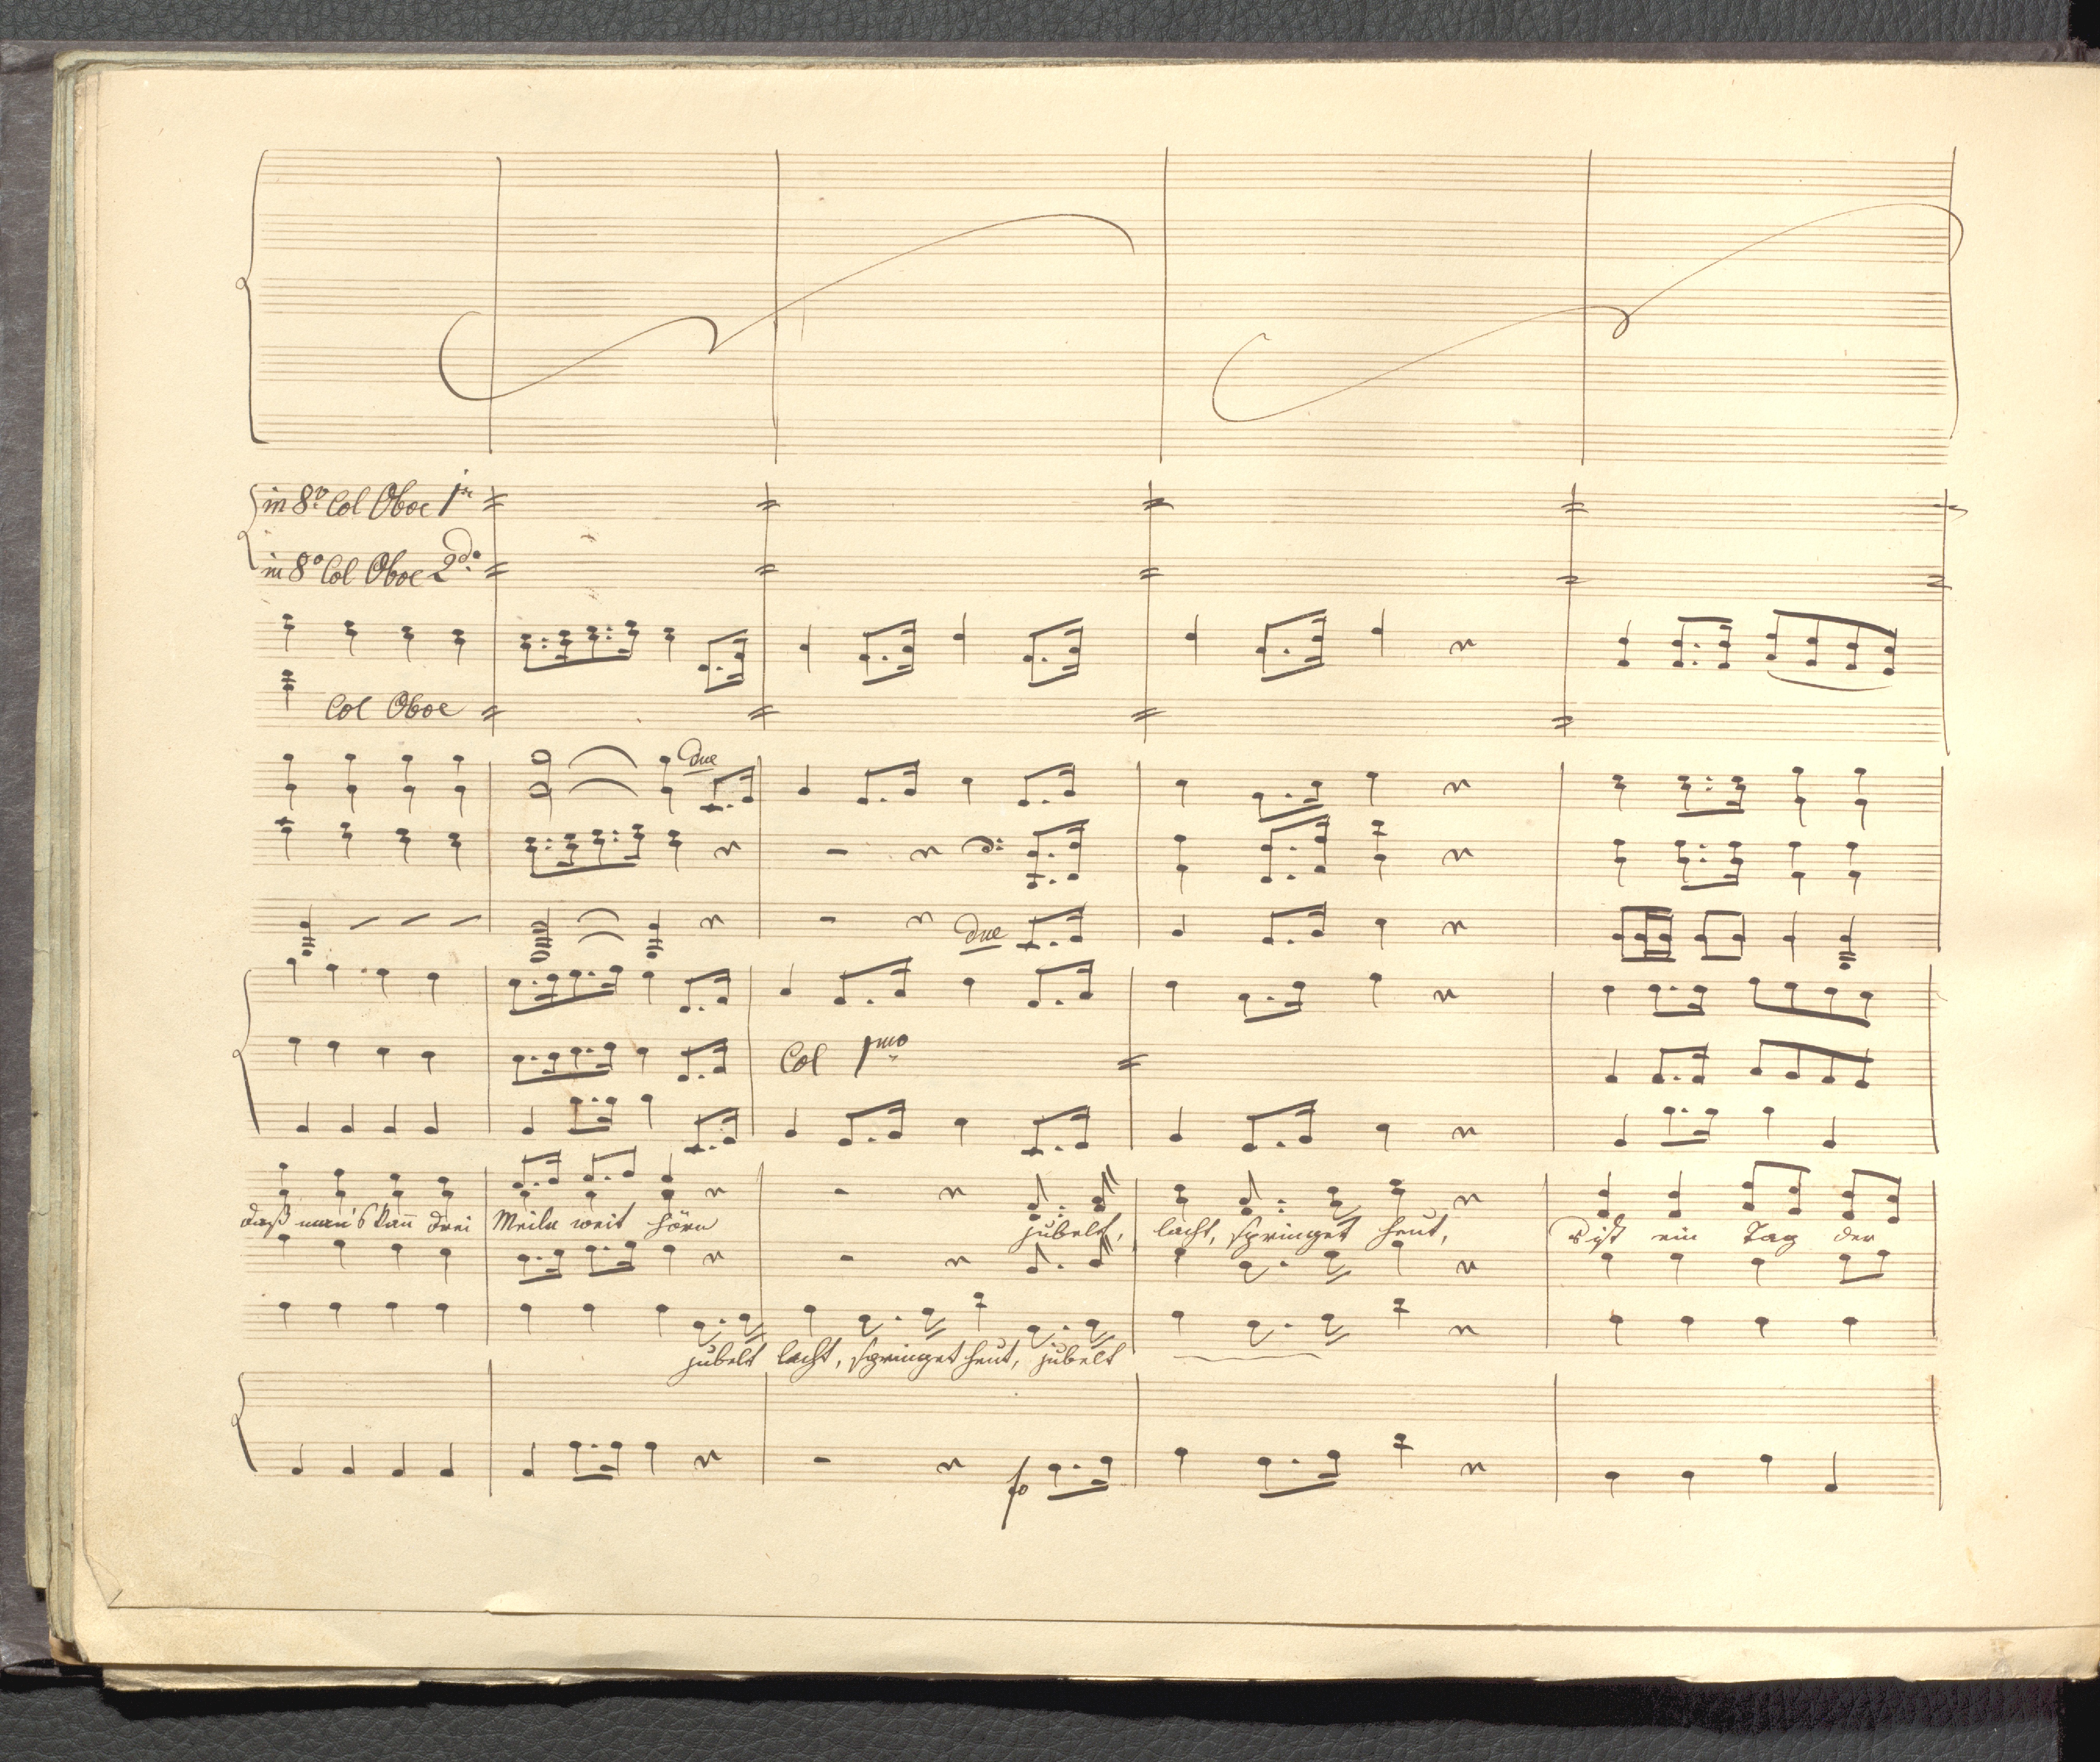 in 8va Col Oboe 1mo
in 8va Col Oboe 2do
Col Oboe
due
due
Col 1mo
daß man's kan̄ drei Meilen weit hören jubelt, lacht, springet heut, s ist ein Tag der
jubelt lacht, springet heut, jubelt
fo